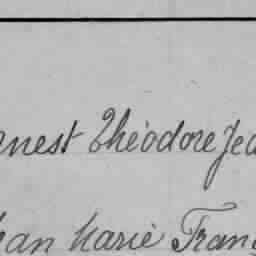 rnest Théodore Jea
ean Marie Fran